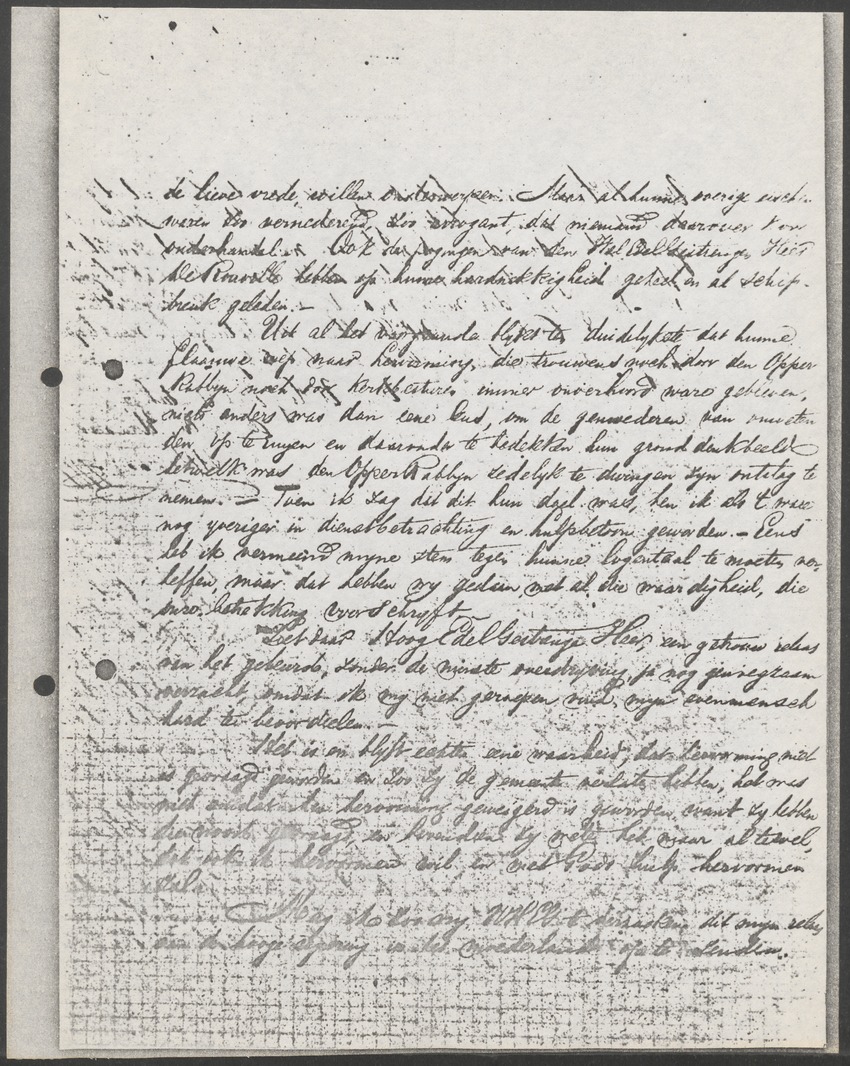 de lieve vrede, willen onderwerpen. Maar al hunne overige eisch-
waren zoo vernederend, zoo arrogant, dat niemand daarover kon
onderhandelen. Ook de pogingen van den WelEdelGestrenge Heer
de Rouville hebben op hunne hardnekkigheid geheel en al schip-
breuk geleden. —
Uit al het voorgaande blykt ten duidelykste dat hunne
flaauwe roep naar hervorming, die trouwens noch door den Opper
Rabbyn noch door Kerkbestuur immer onverhoord ware gebleven,
niets anders was dan eene leus, om de gemoederen van onweten
den op te ruyen en daaronder te bedekken hun grond denkbeeld
hetwelk was den OpperRabbyn zedelyk te dwingen zyn ontslag te
nemen. — Toen ik zag dat dit hun doel was, ben ik als 't ware
nog yveriger in dienstbetrachting en hulpbetoon geworden. — Eens
heb ik vermeend myne stem tegen hunne logentaal te moeten ver-
heffen, maar dat hebben wy gedaan met al die waardigheid, die
onze betrekking voorschryft.
Ziet daar HoogEdelGestrenge Heer, een getrouw relaas
van het gebeurde, zonder de minste overdryving, ja nog genoegzaam
verzacht, omdat ik my niet geroepen vind, myn evenmensch
hard te beoordeelen. —
Het is en blyft echter eene waarheid, dat hervorming niet
is gevraagd geworden en zoo zy de gemeente verlaten hebben, het was
niet omdat hen hervorming geweigerd is geworden, want zy hebben
die nooit gevraagd, en bovendien zy weten het maar al te wel,
dat ook ik hervormen wil, en met Gods hulp hervormen
zal.
Mag ik zoo vry UHEG te verzoeken dit myn relaas
aan de hooge regering in het moederland op te zenden.